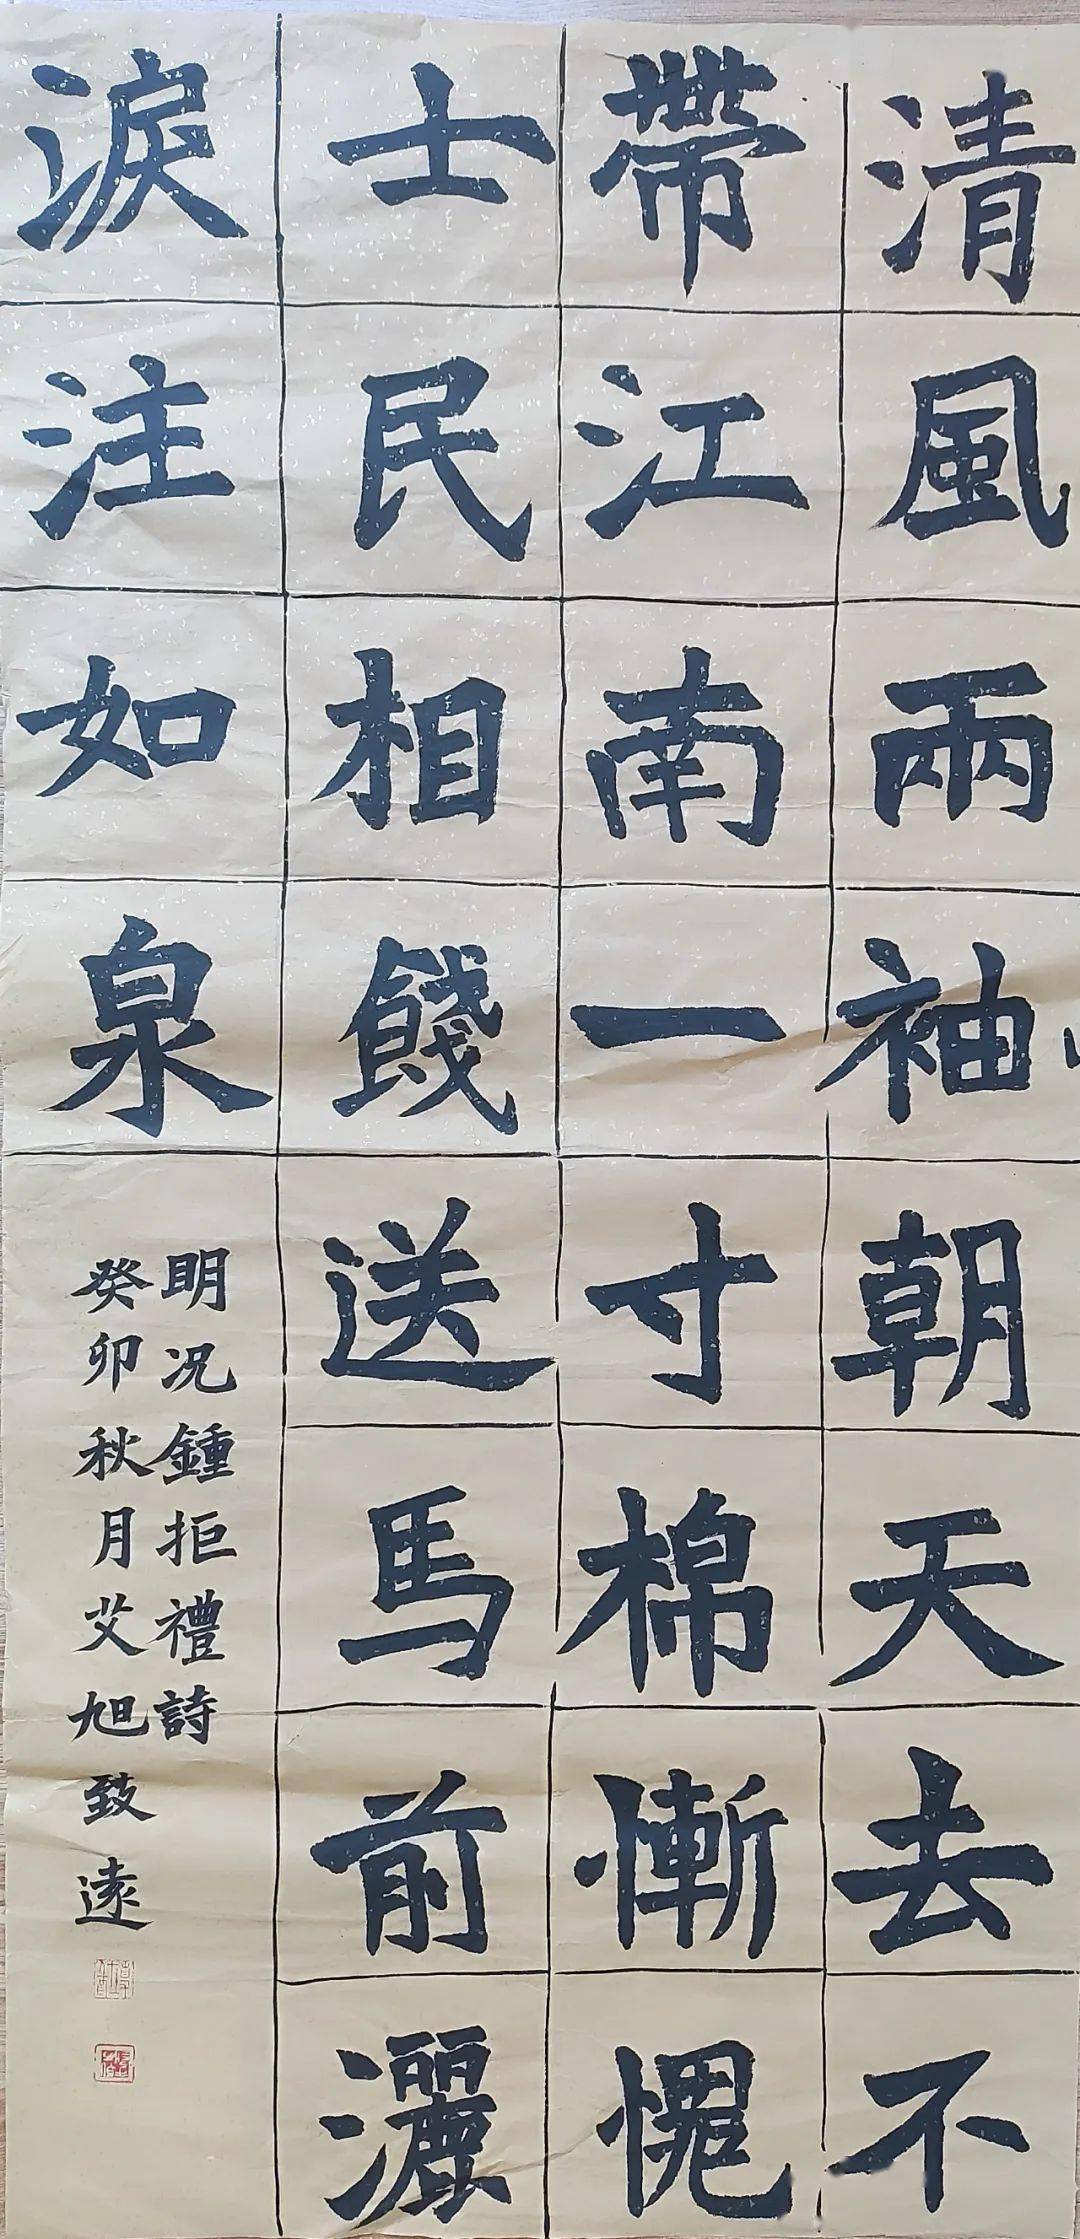 清風兩袖朝天去不
帶江南一寸棉慚愧
士民相餞送馬前灑
淚注如泉
明况鍾拒禮詩
癸卯秋月艾旭致遠